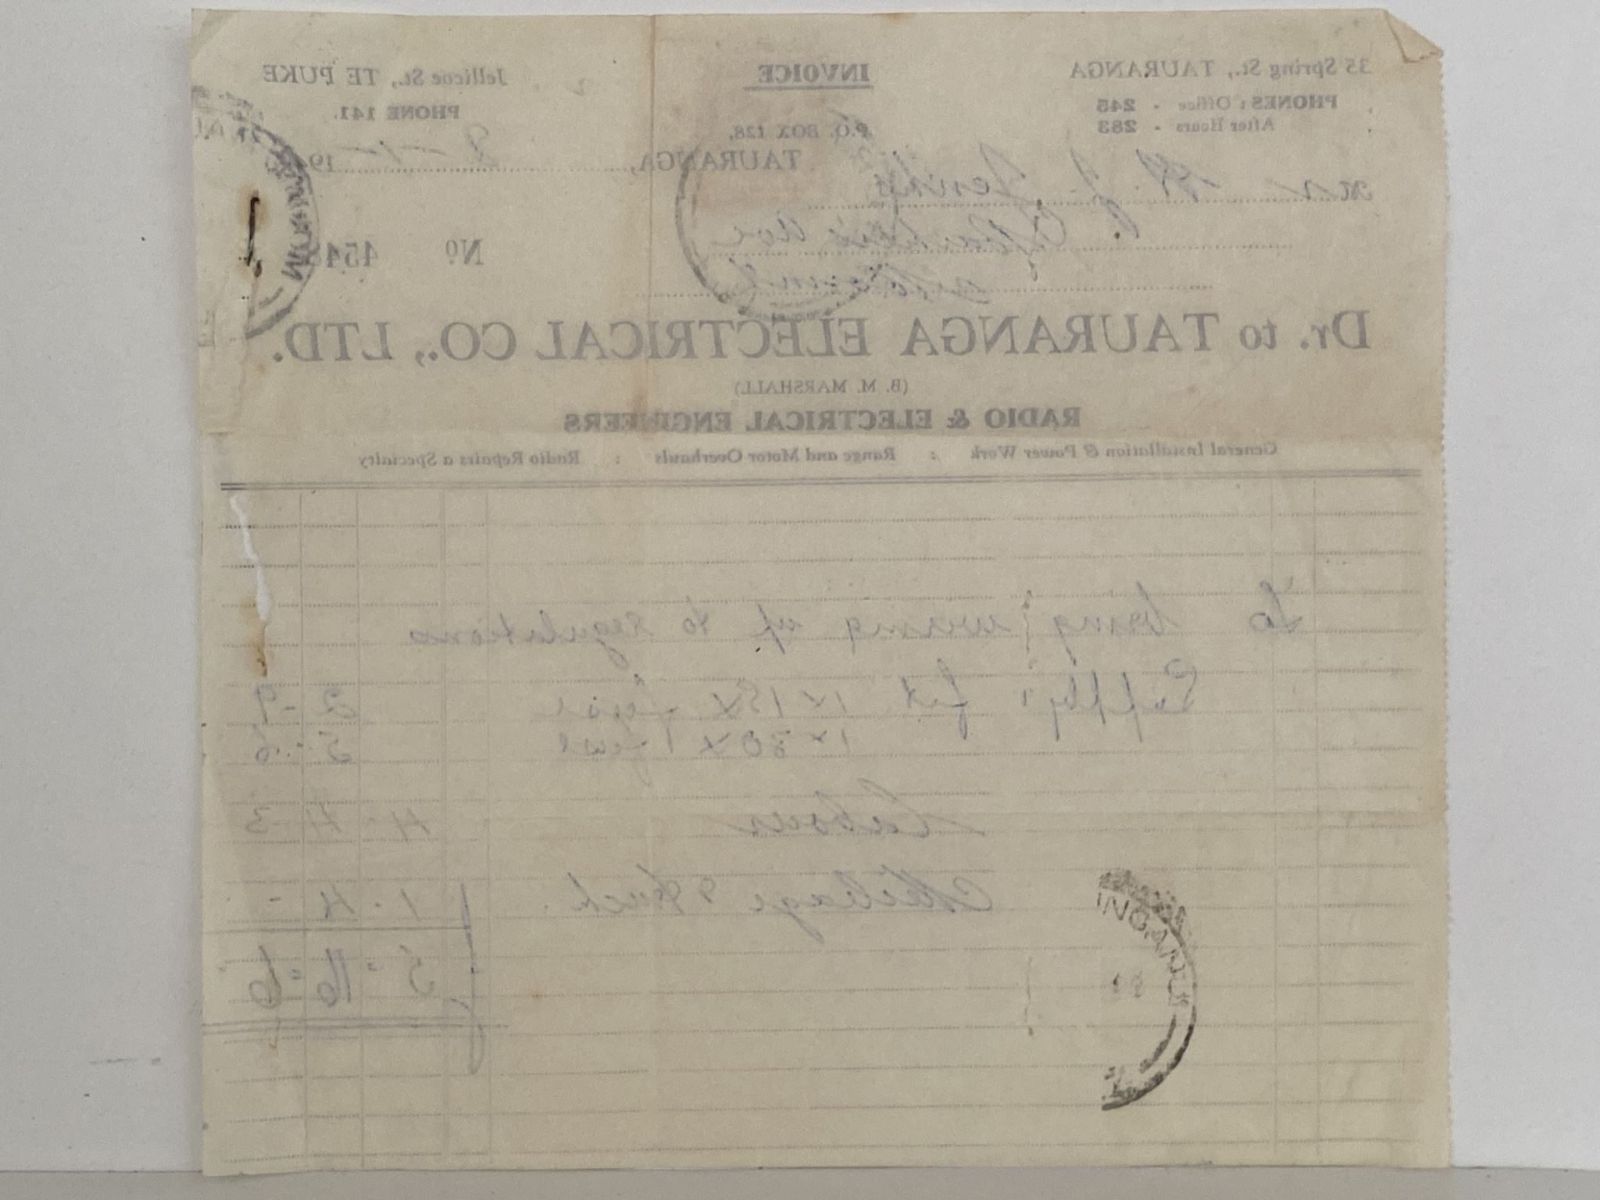 35 Spring St., TAURANGA
PHONES: Office - 245
After Hours - 283
INVOICE
P.O. BOX 128,
TAURANGA,
Jellicoe St., TE PUKE
PHONE 141.
8 - 1 - 19
Mr H. J.
Ave
Nº 454
Dr. to TAURANGA ELECTRICAL CO., LTD.
(B. M. MARSHALL)
RADIO & ELECTRICAL ENGINEERS
General Installation & Power Work : Range and Motor Overhauls : Radio Repairs a Specialty
To bring wiring up to regulations
Supply & fit 1 x 15 x 2 - 9
1 x 30 x 5 - 6
Labour 4 - 4 - 3
Mileage & Truck 1 - 4 -
£ 5 = 16 = 6